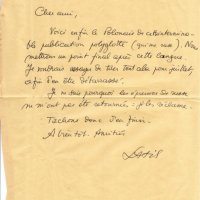 Cher ami,
Voici enfin le Polonais de cette intermina-
ble publication polyglotte (qui me tue). Nous
mettrons un point final après cette langue.
Je voudrais essayer de tirer tout cela pour juillet,
afin d'en être débarrassé.
Je ne sais pourquoi les épreuves de russe
ne m'ont pas été retournées : je les réclame.
Tâchons donc d'en finir.
A bientôt. Amitiés